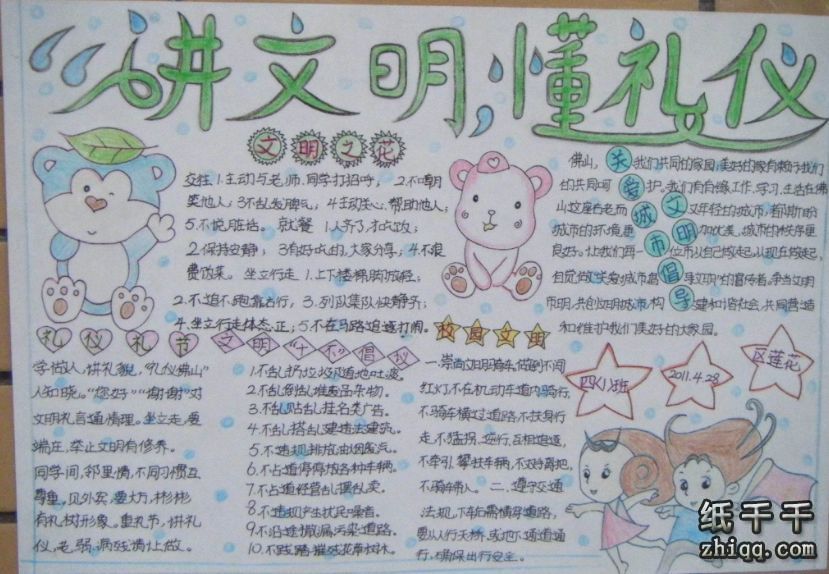 “讲文明,懂礼仪
文明之花
交往 1.主动与老师、同学打招呼； 2.不嘲
笑他人；3.不乱发脾气；4.主动关心、帮助他人；
5.不说脏话。 就餐 1.人齐了,才吃饭；
2.保持安静； 3.有好吃的,大家分享；4.不浪
费饭菜。 坐立行走 1.上下楼梯脚放轻；
2.不追不跑靠右行； 3.列队集队快静齐；
4.坐立行走体态正；5.不在马路追逐打闹。
佛山, 我们共同的家园,美好的家有赖于我们
的共同呵护。我们有自缘工作、学习、生活在佛
山这座古老而又年轻的城市,都期盼
城市的环境更加优美、城市的秩序更
良好。让我们每一位市从自己做起,从现在做起,
自觉做关爱城市 文明的宣传者,争当文明
市明,共创文明城市,构建和谐社会,共同营造
和维护我们美好的大家园。
关爱城市
文明倡导
礼仪礼节
学做人,讲礼貌,“礼仪佛山”
人知晓。“您好”“谢谢”对
文明礼言通情理。坐立走,要
端庄,举止文明有修养。
同学间,邻里情,不同习惯互
尊重。见外宾,要大方,彬彬
有礼树形象。重礼节,讲礼
仪,老、弱、病残请让做。
文明“十不”倡议
1.不乱扔垃圾随地吐痰。
2.不乱倒乱堆废品杂物。
3.不乱贴乱挂各类广告。
4.不乱搭乱建违法建筑。
5.不违规排放油烟废气。
6.不占道停停放各种车辆。
7.不占道经营乱摆乱卖。
8.不违规产生扰民噪音。
9.不沿途撒漏污染道路。
10.不践踏摧残花草树木。
校园文明
一.崇尚文明骑车,做到不闯
红灯不在机动车道内骑行,
不骑车横过道路,不扶身行
走,不猛拐、逆行、互相追逐,
不牵引、攀扶车辆,不双手离把,
不骑车带人。 二、遵守交通
法规,下车后需横穿道路,
要从行天桥、或地下通道通
行,确保出行安全。
四(1)班
2011.4.28
区莲花
纸千千
zhiqq.com